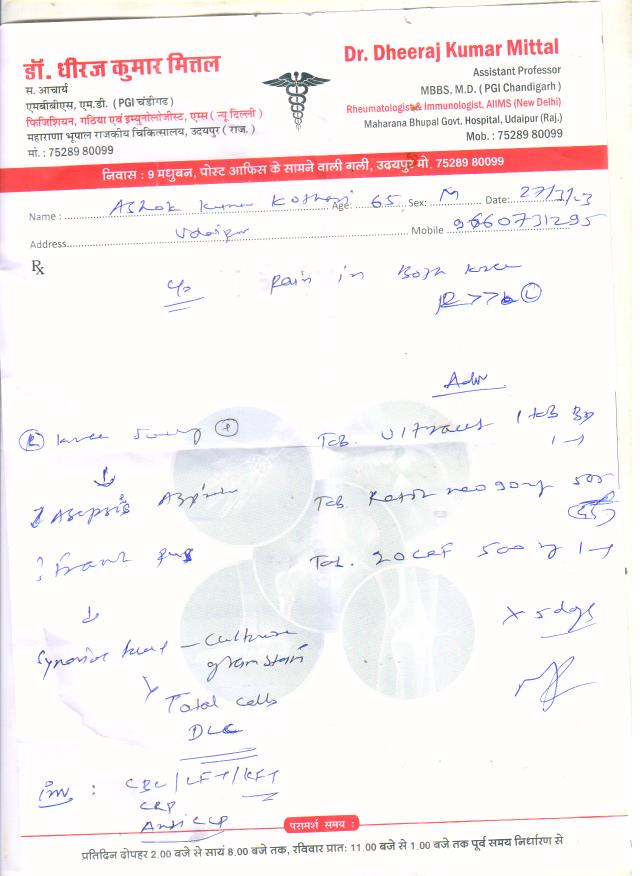 डॉ. धीरज कुमार मित्तल
स. आचार्य
एमबीबीएस, एम.डी. ( PGI चंडीगढ )
फिजिशियन, गठिया एवं इम्युनोलोजीस्ट, एम्स ( न्यू दिल्ली )
महाराणा भूपाल राजकीय चिकित्सालय, उदयपुर ( राज. )
मो. : 75289 80099
Dr. Dheeraj Kumar Mittal
Assistant Professor
MBBS, M.D. ( PGI Chandigarh )
Rheumatologist & Immunologist, AIIMS (New Delhi)
Maharana Bhupal Govt. Hospital, Udaipur (Raj.)
Mob. : 75289 80099
निवास : 9 मधुबन, पोस्ट आफिस के सामने वाली गली, उदयपुर मो. 75289 80099
Name : Ashok Kumar Kothari Age: 65 Sex: M Date:
Address Udaipur Mobile 9660731295
Rx
c/o Pain in Both knee
R >> L
Adv
R knee
Tab. 1 tab BD
Tab.
Tab. 500
x 5 days
Synovial fluid - Culture
gram stain
Total cells
DLC
inv : CBC / LFT / KFT
CRP
Anti CCP
परामर्श समय :
प्रतिदिन दोपहर 2.00 बजे से सायं 8.00 बजे तक, रविवार प्रात: 11.00 बजे से 1.00 बजे तक पूर्व समय निर्धारण से